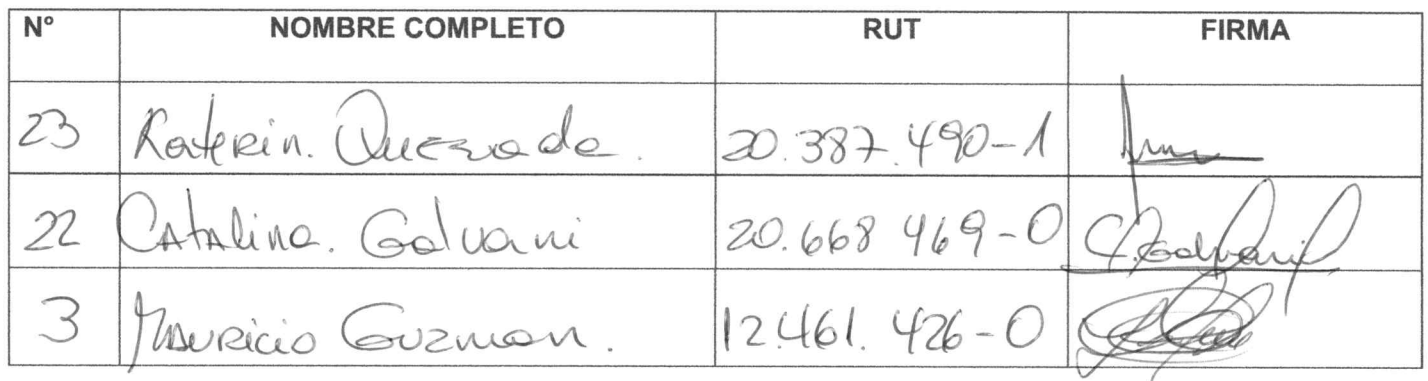 N° NOMBRE COMPLETO RUT FIRMA
23 Katerin. Quezada. 20.387.490-1
22 Catalina. Galvani 20.668 469-0 C. Galvani
3 Mauricio Guzman. 12.461.426-0